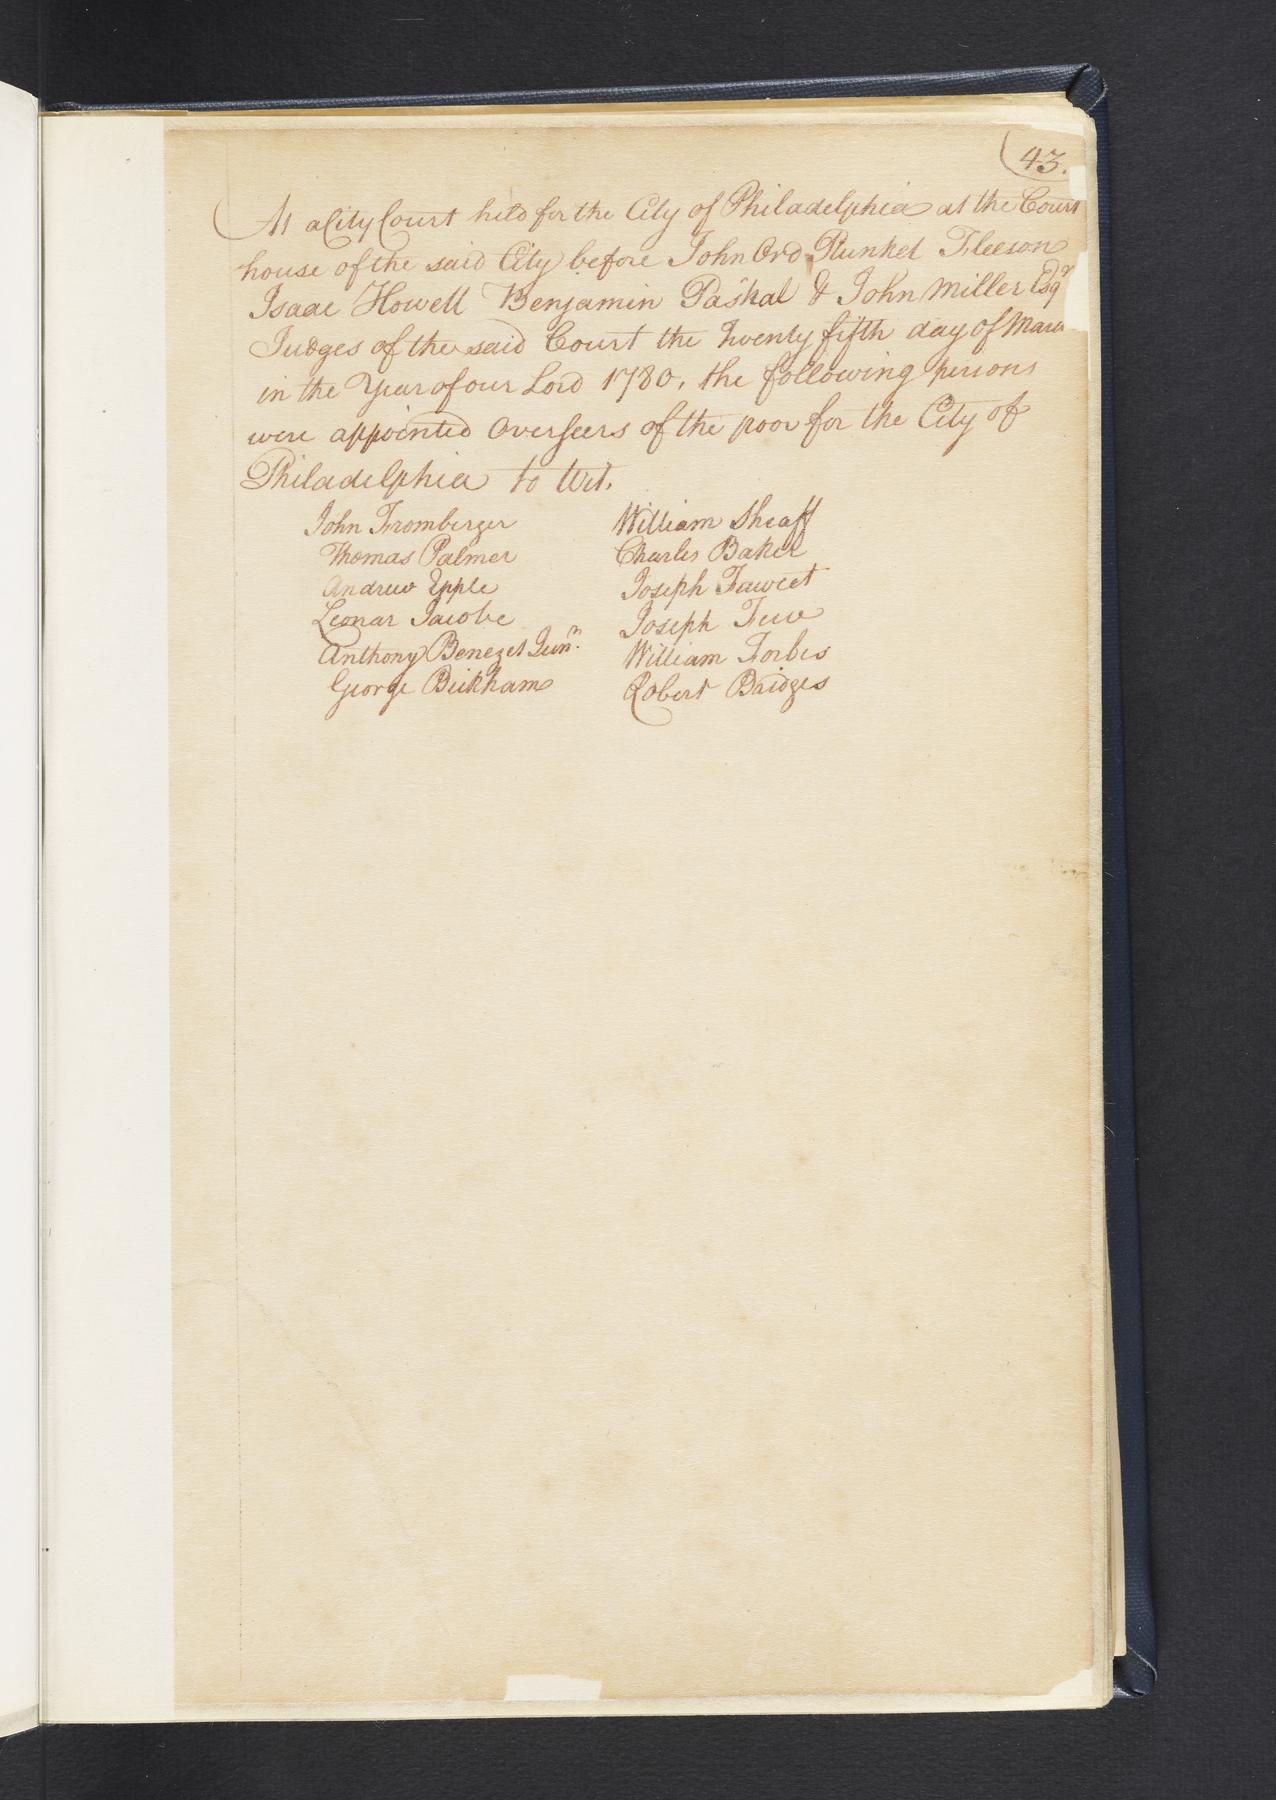 43.
At a City Court held for the City of Philadelphia at the Court
house of the said City before John Ord Plunket Fleeson
Isaac Howell Benjamin Paskal & John Miller Esqr
Judges of the said Court the Twenty fifth day of Marc
in the Year of our Lord 1780, the following persons
were appointed Overseers of the poor for the City of
Philadelphia to Wit,
John Fromberger William Sheaff
Thomas Palmer Charles Baker
Andrew Epple Joseph Fawcet
Leonar Jacobe Joseph Few
Anthony Benezet Junr. William Forbes
George Bickham Robert Bridges